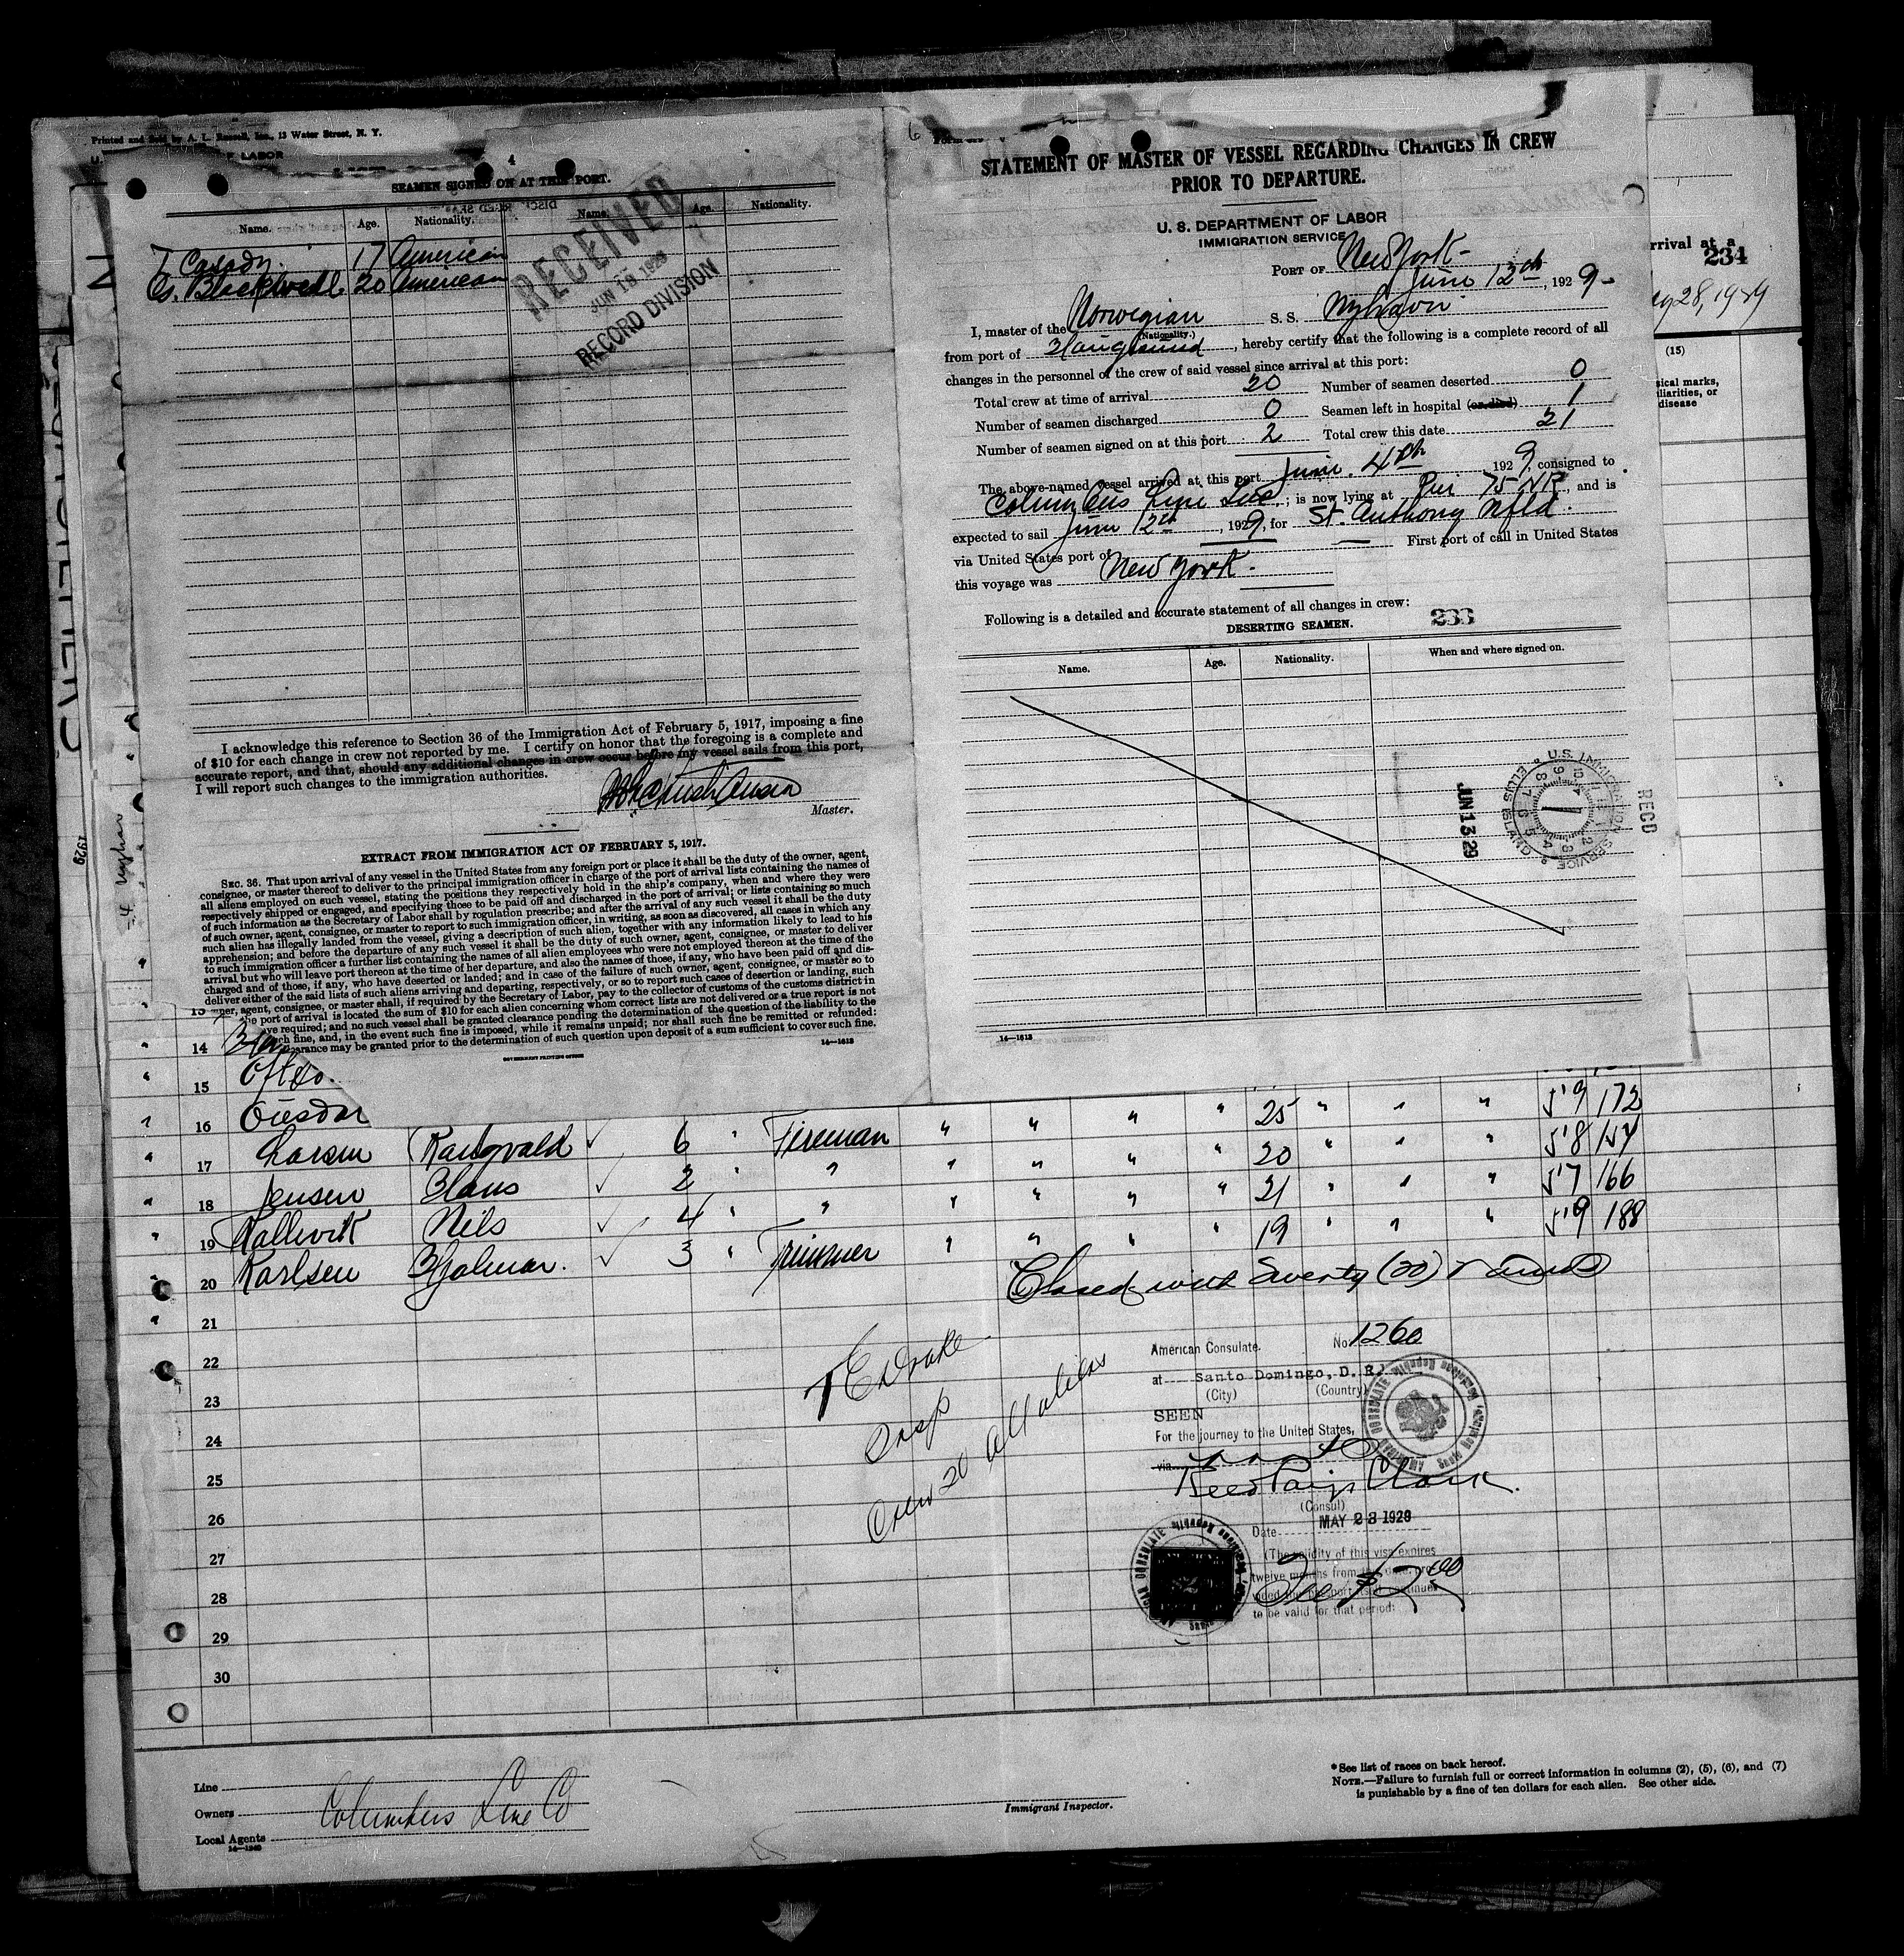 Printed and Sold by A. L. Russell, Inc., 13 Water Street, N. Y.
LABOR
4
SEAMEN SIGNED ON AT THIS PORT.
Name. Age. Nationality. Name. Age. Nationality.
T. Casady. 17 American
G. Blackwell 20 American
RECEIVED
JUN 19 1929
RECORD DIVISION
I acknowledge this reference to Section 36 of the Immigration Act of February 5, 1917, imposing a fine
of $10 for each change in crew not reported by me. I certify on honor that the foregoing is a complete and
accurate report, and that, should any additional changes in crew occur before my vessel sails from this port,
I will report such changes to the immigration authorities.
Master.
EXTRACT FROM IMMIGRATION ACT OF FEBRUARY 5, 1917.
SEC. 36. That upon arrival of any vessel in the United States from any foreign port or place it shall be the duty of the owner, agent,
consignee, or master thereof to deliver to the principal immigration officer in charge of the port of arrival lists containing the names of
all aliens employed on such vessel, stating the positions they respectively hold in the ship's company, when and where they were
respectively shipped or engaged, and specifying those to be paid off and discharged in the port of arrival; or lists containing so much
of such information as the Secretary of Labor shall by regulation prescribe; and after the arrival of any such vessel it shall be the duty
of such owner, agent, consignee, or master to report to such immigration officer, in writing, as soon as discovered, all cases in which any
such alien has illegally landed from the vessel, giving a description of such alien, together with any information likely to lead to his
apprehension; and before the departure of any such vessel it shall be the duty of such owner, agent, consignee, or master to deliver
to such immigration officer a further list containing the names of all alien employees who were not employed thereon at the time of the
arrival but who will leave port thereon at the time of her departure, and also the names of those, if any, who have been paid off and dis-
charged and of those, if any, who have deserted or landed; and in case of the failure of such owner, agent, consignee, or master so to
deliver either of the said lists of such aliens arriving and departing, respectively, or so to report such cases of desertion or landing, such
ner, agent, consignee, or master shall, if required by the Secretary of Labor, pay to the collector of customs of the customs district in
he port of arrival is located the sum of $10 for each alien concerning whom correct lists are not delivered or a true report is not
ve required; and no such vessel shall be granted clearance pending the determination of the question of the liability to the
ch fine, and, in the event such fine is imposed, while it remains unpaid; nor shall such fine be remitted or refunded:
arance may be granted prior to the determination of such question upon deposit of a sum sufficient to cover such fine.
GOVERNMENT PRINTING OFFICE 14—1613
6
STATEMENT OF MASTER OF VESSEL REGARDING CHANGES IN CREW
PRIOR TO DEPARTURE.
U. S. DEPARTMENT OF LABOR
IMMIGRATION SERVICE
PORT OF New York
June 12th, 1929
I, master of the Norwegian S. S.
(Nationality.)
from port of Haugesund, hereby certify that the following is a complete record of all
changes in the personnel of the crew of said vessel since arrival at this port:
Total crew at time of arrival 20 Number of seamen deserted 0
Number of seamen discharged 0 Seamen left in hospital (or died) 1
Number of seamen signed on at this port 2 Total crew this date 21
The above-named vessel arrived at this port June 4th 1929, consigned to
Columbus Line Inc; is now lying at Pier 75 NR, and is
expected to sail June 12th, 1929, for St. Anthony Nfld.
via United States port of — First port of call in United States
this voyage was New York.
Following is a detailed and accurate statement of all changes in crew:
DESERTING SEAMEN. 233
Name. Age. Nationality. When and where signed on.
RECD
U.S. IMMIGRATION SERVICE
ELLIS ISLAND
JUN 13 29
14—1613
rrival at a
234
28, 1929
(15)
sical marks,
iliarities, or
disease
1929
14
15
16 " " " " 25 " " " 5'9 172
17 Larsen Ragnvald 6 " Fireman " " " " 20 " " " 5'8 154
18 Jensen Hans 2 " " " " " " 21 " " " 5'7 166
19 Kallevik Nils 4 " " " " " " 19 " " " 5'9 188
20 Karlsen Hjalmar. 3 " Trimmer
Closed with Twenty (20) names
21
22
23
24
25
26
27
28
29
30
T E Drake
Insp
Crew 20 all aliens
American Consulate. No. 1260
at Santo Domingo, D. R.
(City) (Country)
SEEN
For the journey to the United States,
via
Reed Paige Clark
(Consul)
Date MAY 23 1929
(The validity of this visa expires
twelve months from
to be valid for that period.
Fee $2.00
AMERICAN CONSULATE
Line
Owners Columbus Line Co
Local Agents
14—1240
Immigrant Inspector.
*See list of races on back hereof.
NOTE.—Failure to furnish full or correct information in columns (2), (5), (6), and (7)
is punishable by a fine of ten dollars for each alien. See other side.